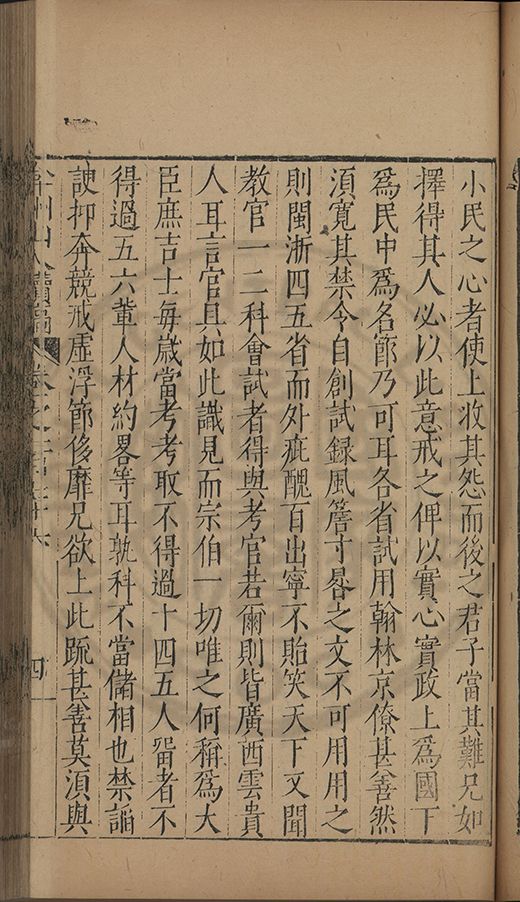 小民之心者使上收其怨而後之君子當其難兄如
擇得其人必以此意戒之俾以實心實政上爲國下
爲民中爲名節乃可耳各省試用翰林京僚甚善然
須寬其禁今自創試録風簷寸晷之文不可用用之
則閩浙四五省而外疵醜百出寧不貽笑天下文聞
教官一二科會試者得與考官若爾則皆廣西雲貴
人耳言官具如此識見而宗伯一切唯之何稱爲大
臣庶吉士每歲當考考取不得過十四五人留者不
得過五六輩人材約畧等耳孰科不當儲相也禁謟
諛抑奔競戒虛浮節侈靡兄欲上此疏甚善莫須與
弇州山人續稿
卷之一百九十六
四